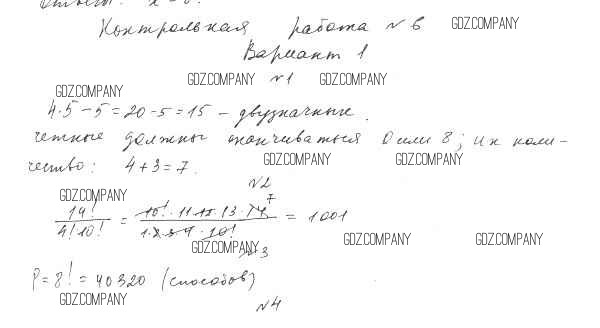 Ответ: x = 8.
Контрольная работа №6 GDZ.COMPANY
Вариант 1
GDZ.COMPANY №1 GDZ.COMPANY
GDZ.COMPANY
4·5 − 5 = 20 − 5 = 15 − двузначные.
четные должны оканчиваться 0 или 8; их коли-
GDZ.COMPANY GDZ.COMPANY
чество: 4 + 3 = 7.
№2
GDZ.COMPANY
14!/4!10! = 10!·11·12·13·14 7/1·2·3·4·10! = 1001
GDZ.COMPANY №3 GDZ.COMPANY GDZ.COMPANY
P = 8! = 40320 (способов)
GDZ.COMPANY
№4